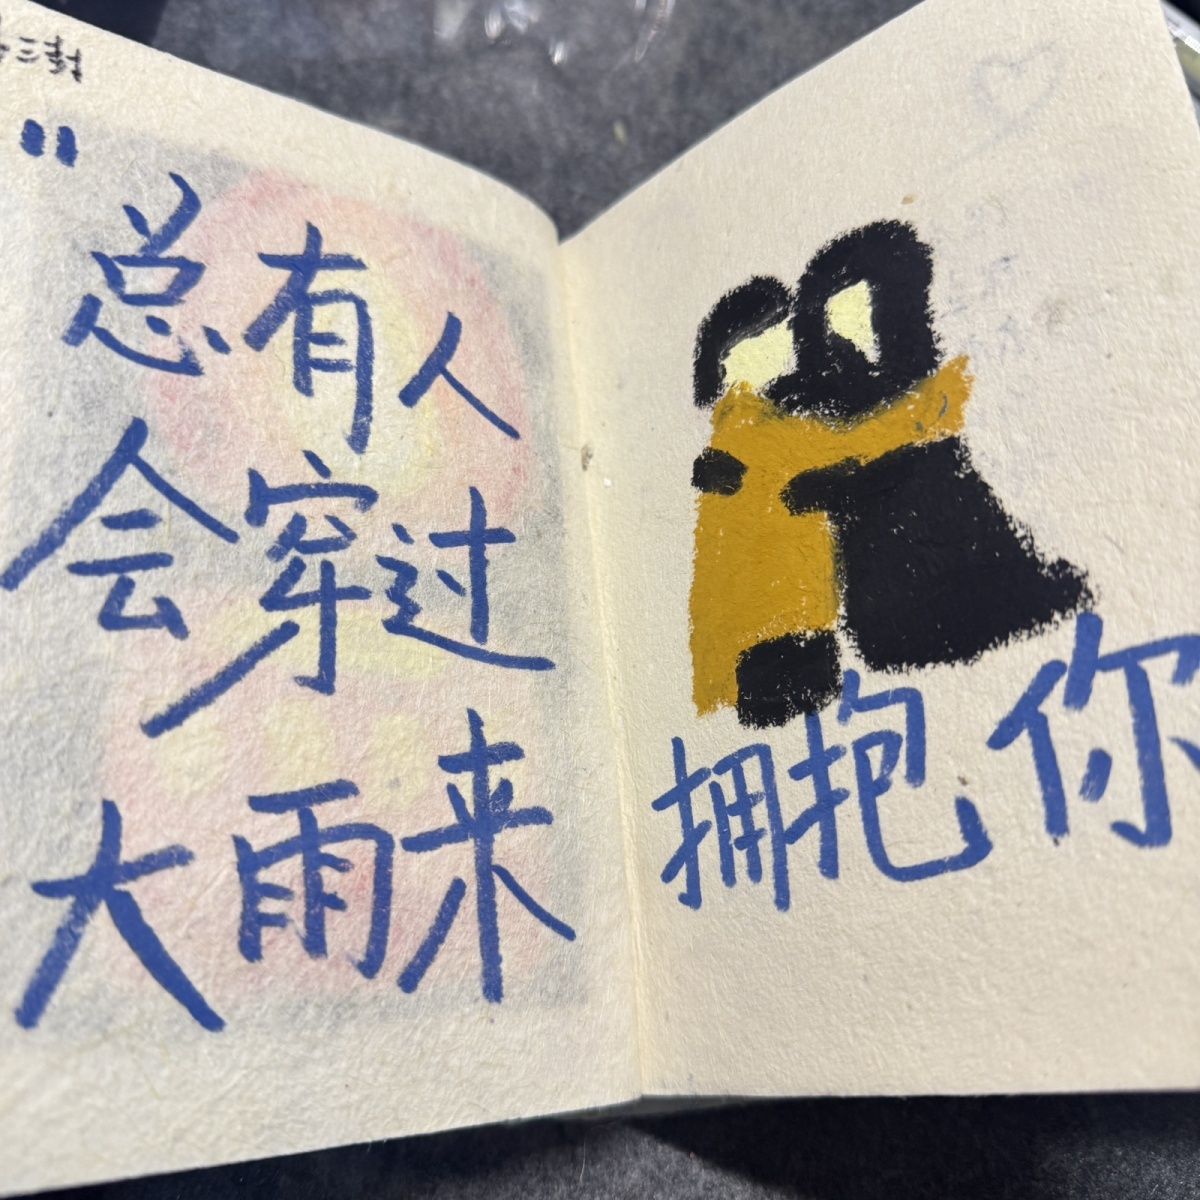 "
总有人
会穿过
大雨来
拥抱你